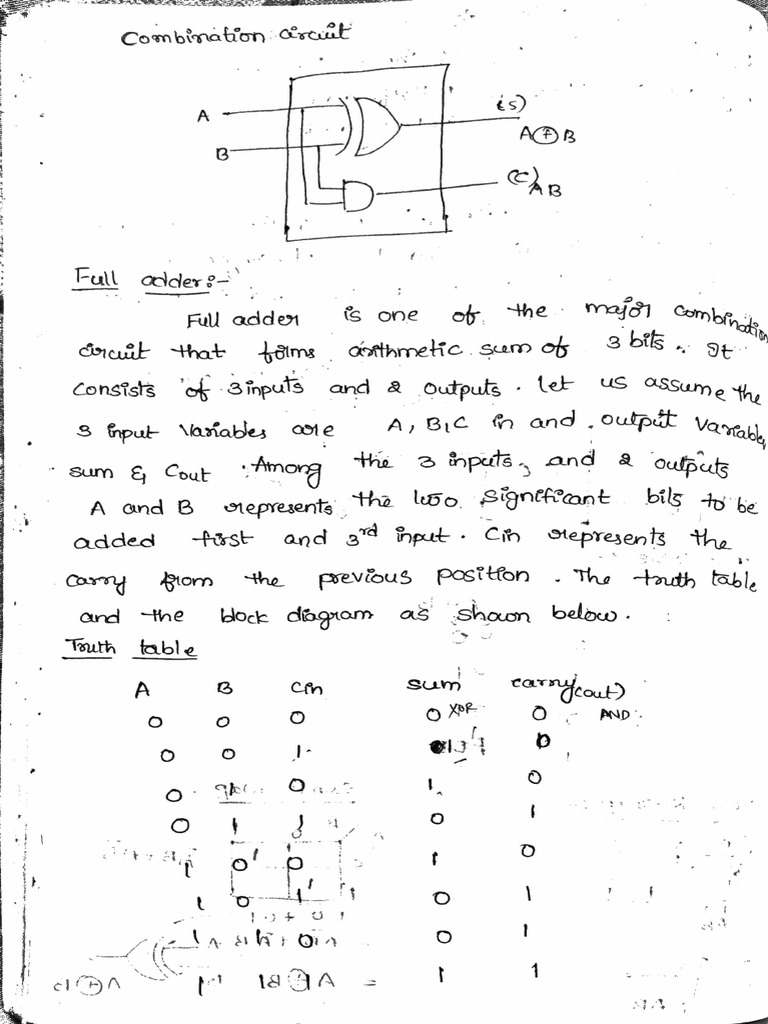 Combination circuit
A
B
(S)
A ⊕ B
(C)
AB
Full adder:-
Full adder is one of the major combination
circuit that forms arithmetic sum of 3 bits. It
consists of 3 inputs and 2 outputs. Let us assume the
3 input Variables are A, B, C in and output Variables
sum & Cout. Among the 3 inputs, and 2 outputs
A and B represents the two significant bits to be
added first and 3rd input. Cin represents the
carry from the previous position. The truth table
and the block diagram as shown below.
Truth table
A B Cin sum carry(out)
0 0 0 0 XOR 0 AND
0 0 1 1 0
0 0 1 0
0 1 1 0 1
1 0 0 1 0
1 0 1 0 1
1 1 0 0 1
1 1 1 1 1